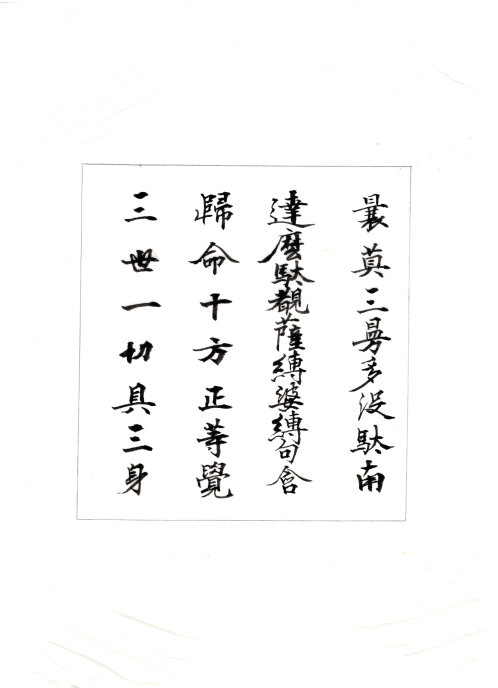 曩莫三曼多没駄南
達麼駄覩薩縛婆縛句含
歸命十方正等覺
三世一切具三身